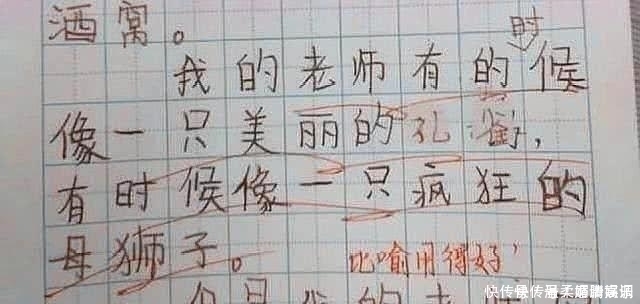 酒窝。
时
我的老师有的候
像一只美丽的孔雀,
有时候像一只疯狂的
母狮子。
比喻用得好,
快传号